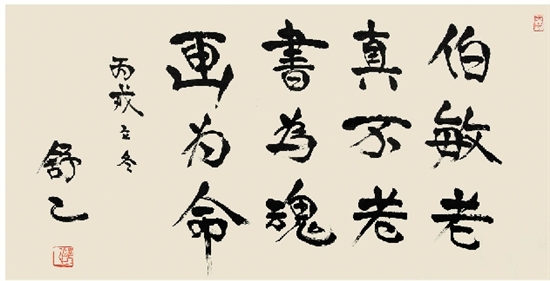 伯敏老
真不老
書為魂
画为命
丙戌立冬
舒乙